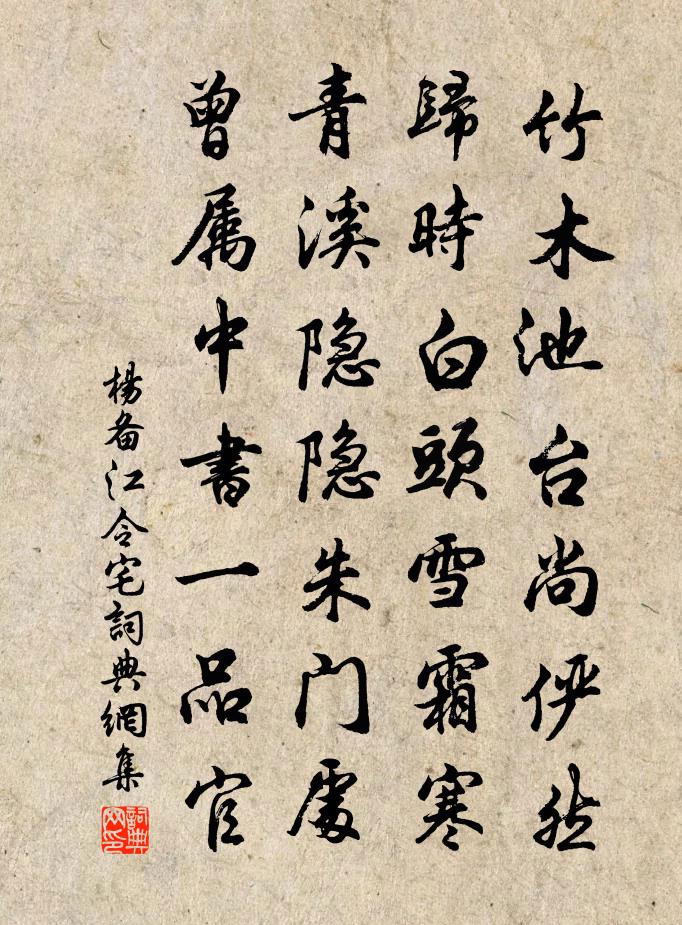 竹木池台尚俨然
歸時白頭雪霜寒
青溪隐隐朱门處
曾属中書一品官
楊备江令宅詞典網集
詞典網印